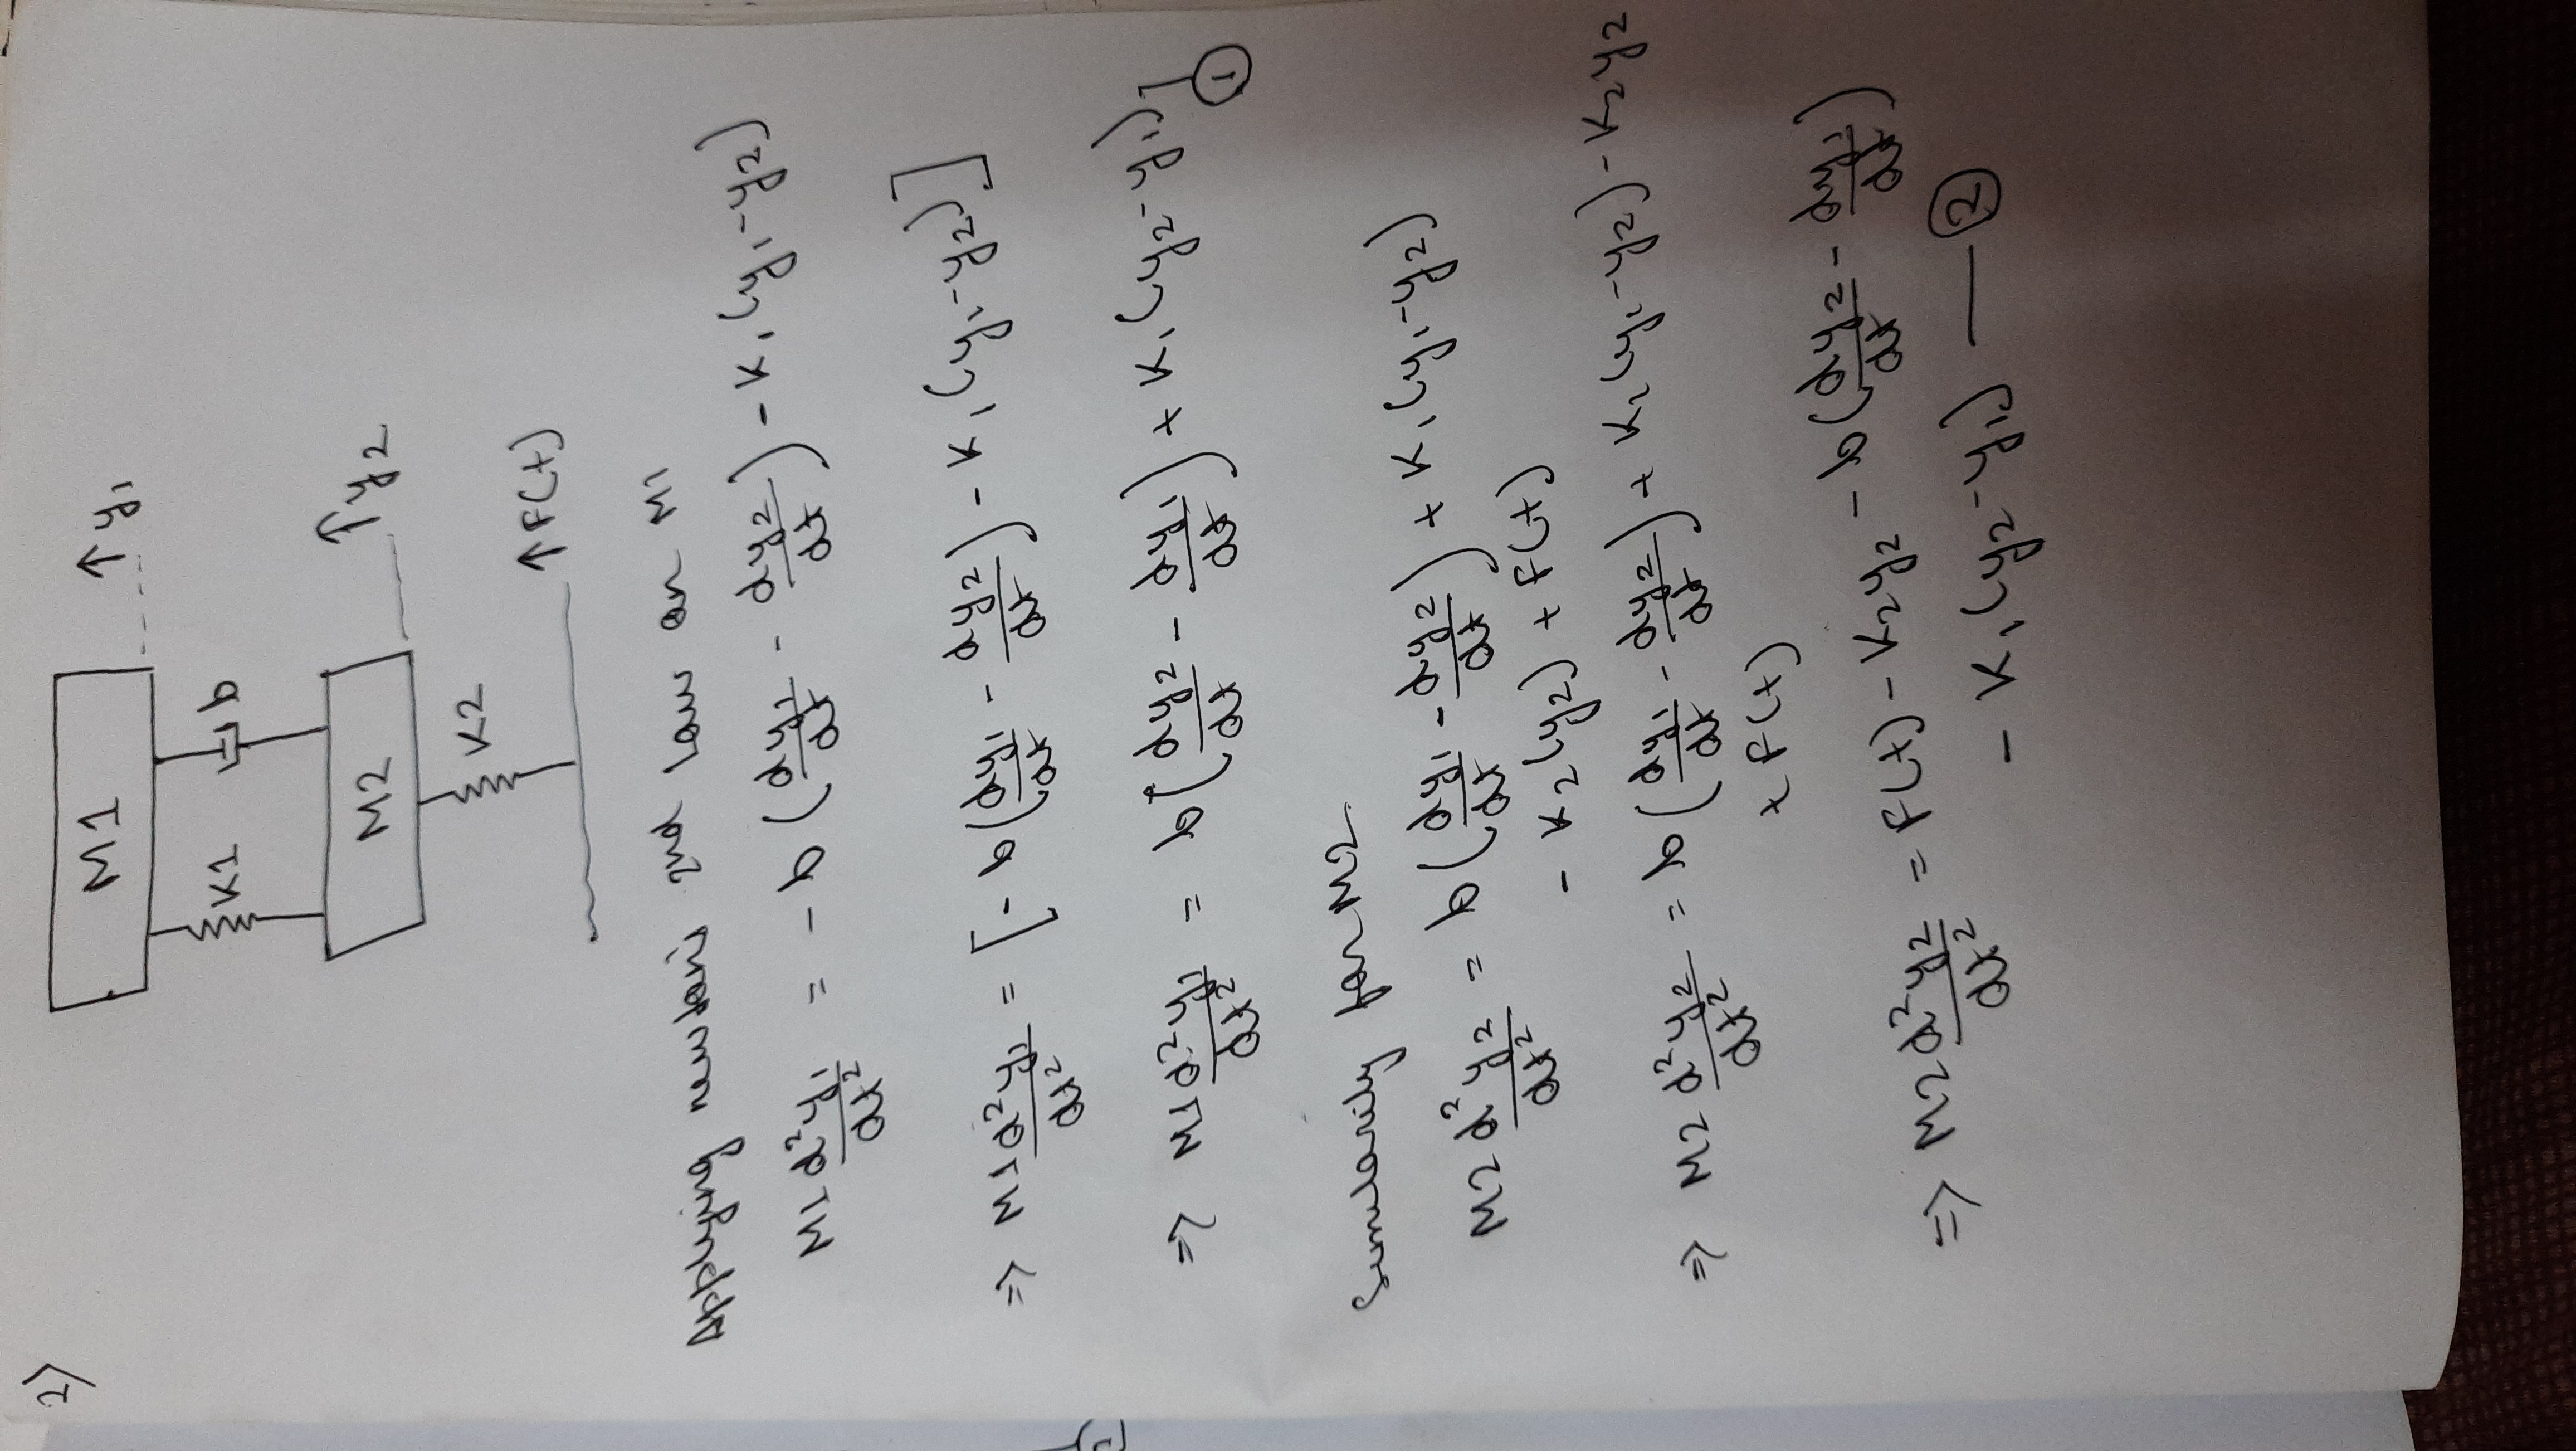 2)
M1
↑ y₁
K1 b
M2
↑ y₂
K2
↑ F(t)
Applying newton's 2nd Law on M1
M1 d²y₁/dt² = - b (dy₁/dt - dy₂/dt) - K₁ (y₁-y₂)
⇒ M1 d²y₁/dt² = [- b (dy₁/dt - dy₂/dt) - K₁ (y₁-y₂)]
⇒ M1 d²y₁/dt² = b (dy₂/dt - dy₁/dt) + K₁ (y₂-y₁) ①
Similarily for M2
M2 d²y₂/dt² = b (dy₁/dt - dy₂/dt) + K₁ (y₁-y₂)
- K₂ (y₂) + F(t)
⇒ M2 d²y₂/dt² = b (dy₁/dt - dy₂/dt) + K₁ (y₁-y₂) - K₂y₂
+ F(t)
⇒ M2 d²y₂/dt² = F(t) - K₂y₂ - b (dy₂/dt - dy₁/dt)
- K₁ (y₂-y₁) — ②